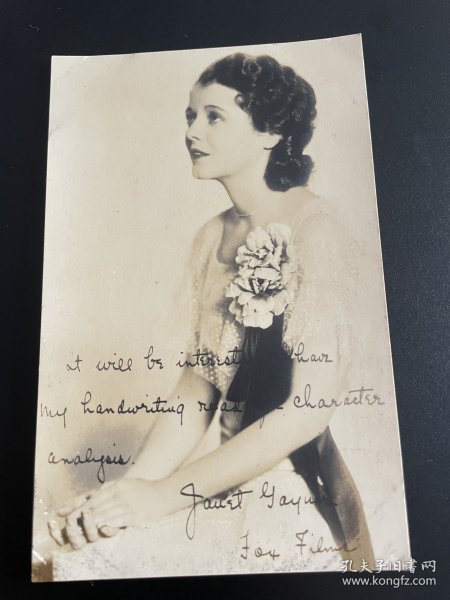 It will be interest have
my handwriting read for character
analysis.
Janet Gaynor
Fox Films
孔夫子旧书网
www.kongfz.com